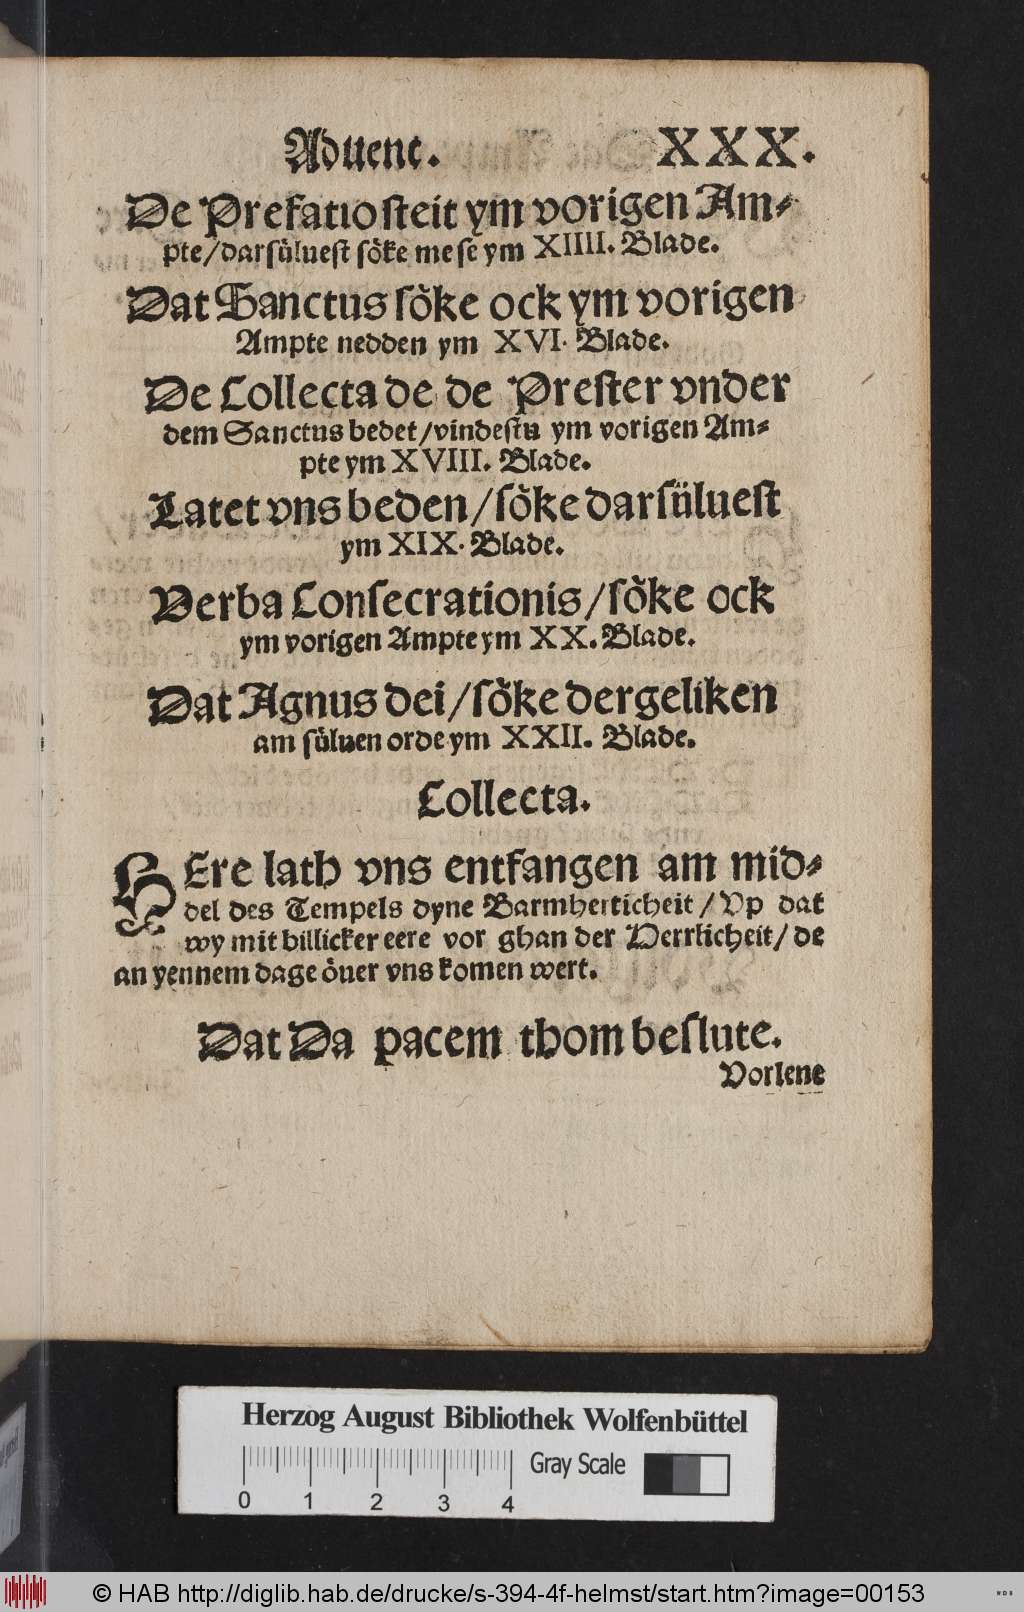 Aduent. XXX.
De Prefatio steit ym vorigen Am-
pte/darsüluest söke me se ym XIIII. Blade.
Dat Sanctus söke ock ym vorigen
Ampte nedden ym XVI. Blade.
De Collecta de de Prester vnder
dem Sanctus bedet/vindestu ym vorigen Am-
pte ym XVIII. Blade.
Latet vns beden/söke darsüluest
ym XIX. Blade.
Verba Consecrationis/söke ock
ym vorigen Ampte ym XX. Blade.
Dat Agnus dei/söke dergeliken
am süluen orde ym XXII. Blade.
Collecta.
HEre lath vns entfangen am mid-
del des Tempels dyne Barmherticheit/Vp dat
wy mit billicker eere vor ghan der Herrlicheit/de
an yennem dage öuer vns komen wert.
Dat Da pacem thom beslute.
Vorlene
Herzog August Bibliothek Wolfenbüttel
Gray Scale
0 1 2 3 4
© HAB http://diglib.hab.de/drucke/s-394-4f-helmst/start.htm?image=00153